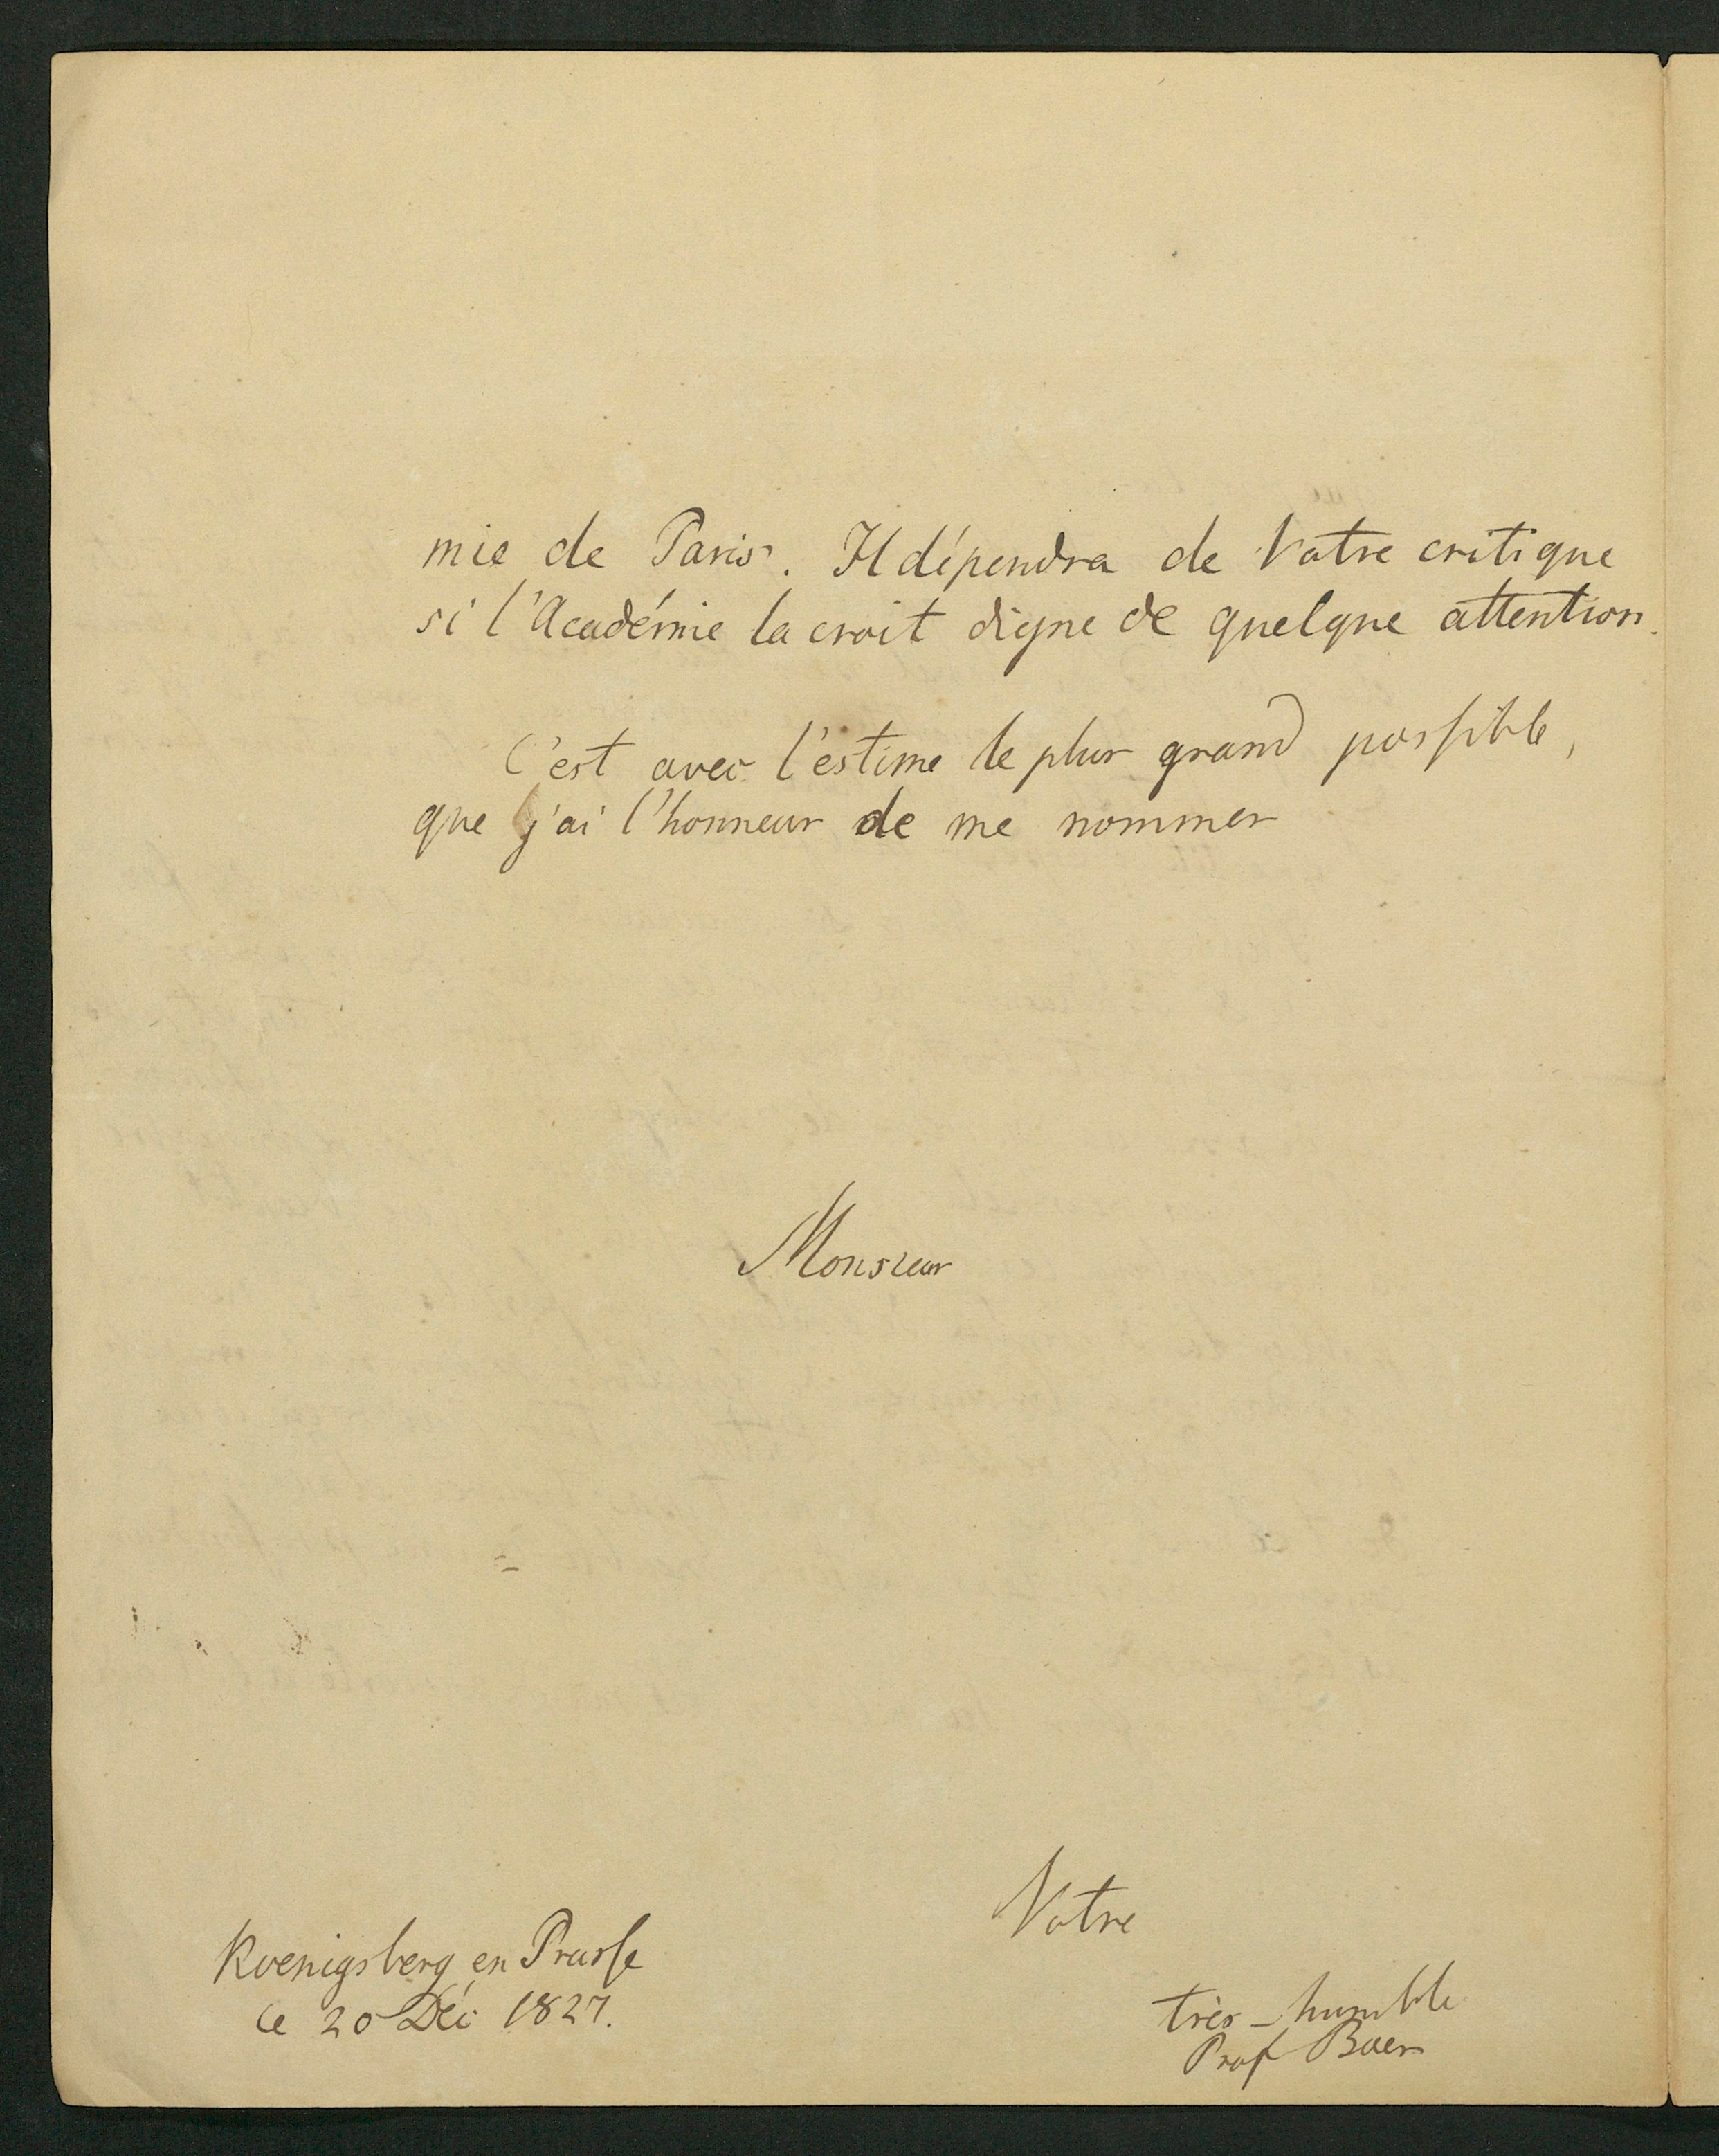 mie de Paris. Il dépendra de Votre critique
si l'Académie la croit digne de quelque attention.
C'est avec l'estime le plus grand possible,
que j'ai l'honneur de me nommer
Monsieur
Votre
Koenigsberg en Prusse
ce 20 Déc 1827.
très-humble
Prof Baer